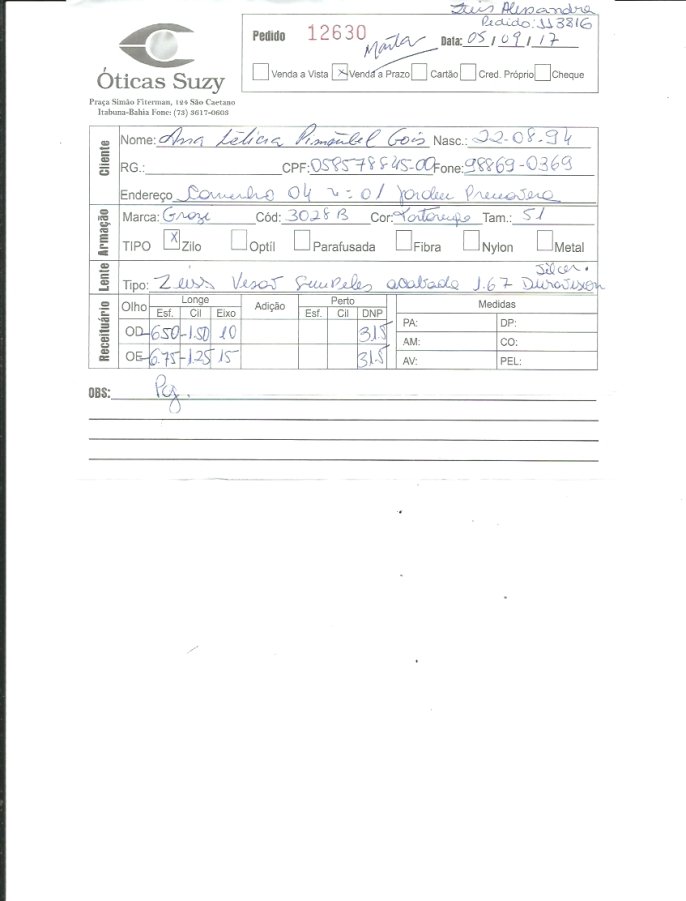 Luis Alessandro
Pedido: 113816
Pedido 12630 Marta Data: 05/09/17
Venda a Vista X Venda a Prazo Cartão Cred. Próprio Cheque
Óticas Suzy
Praça Simão Fiterman, 124 São Caetano
Itabuna-Bahia Fone: (73) 3617-0603
Cliente
Nome: Ana Letícia Pimentel Gois Nasc.: 22-08-94
RG.: CPF: 058578845-00 Fone: 98869-0369
Endereço Caminho 04 n=01 Jardim Primavera
Armação
Marca: Grazi Cód: 3028 B Cor: Tartaruga Tam.: 51
TIPO X Zilo Optíl Parafusada Fibra Nylon Metal
Lente
Tipo: Zeiss Visão Simples acabada 1.67 Duravision
Silver.
Receituário
Olho Longe Adição Perto Medidas
Esf. Cil Eixo Esf. Cil DNP
PA: DP:
OD -6.50 -1.50 10 31.5
AM: CO:
OE -6.75 -1.25 15 31.5
AV: PEL:
OBS: